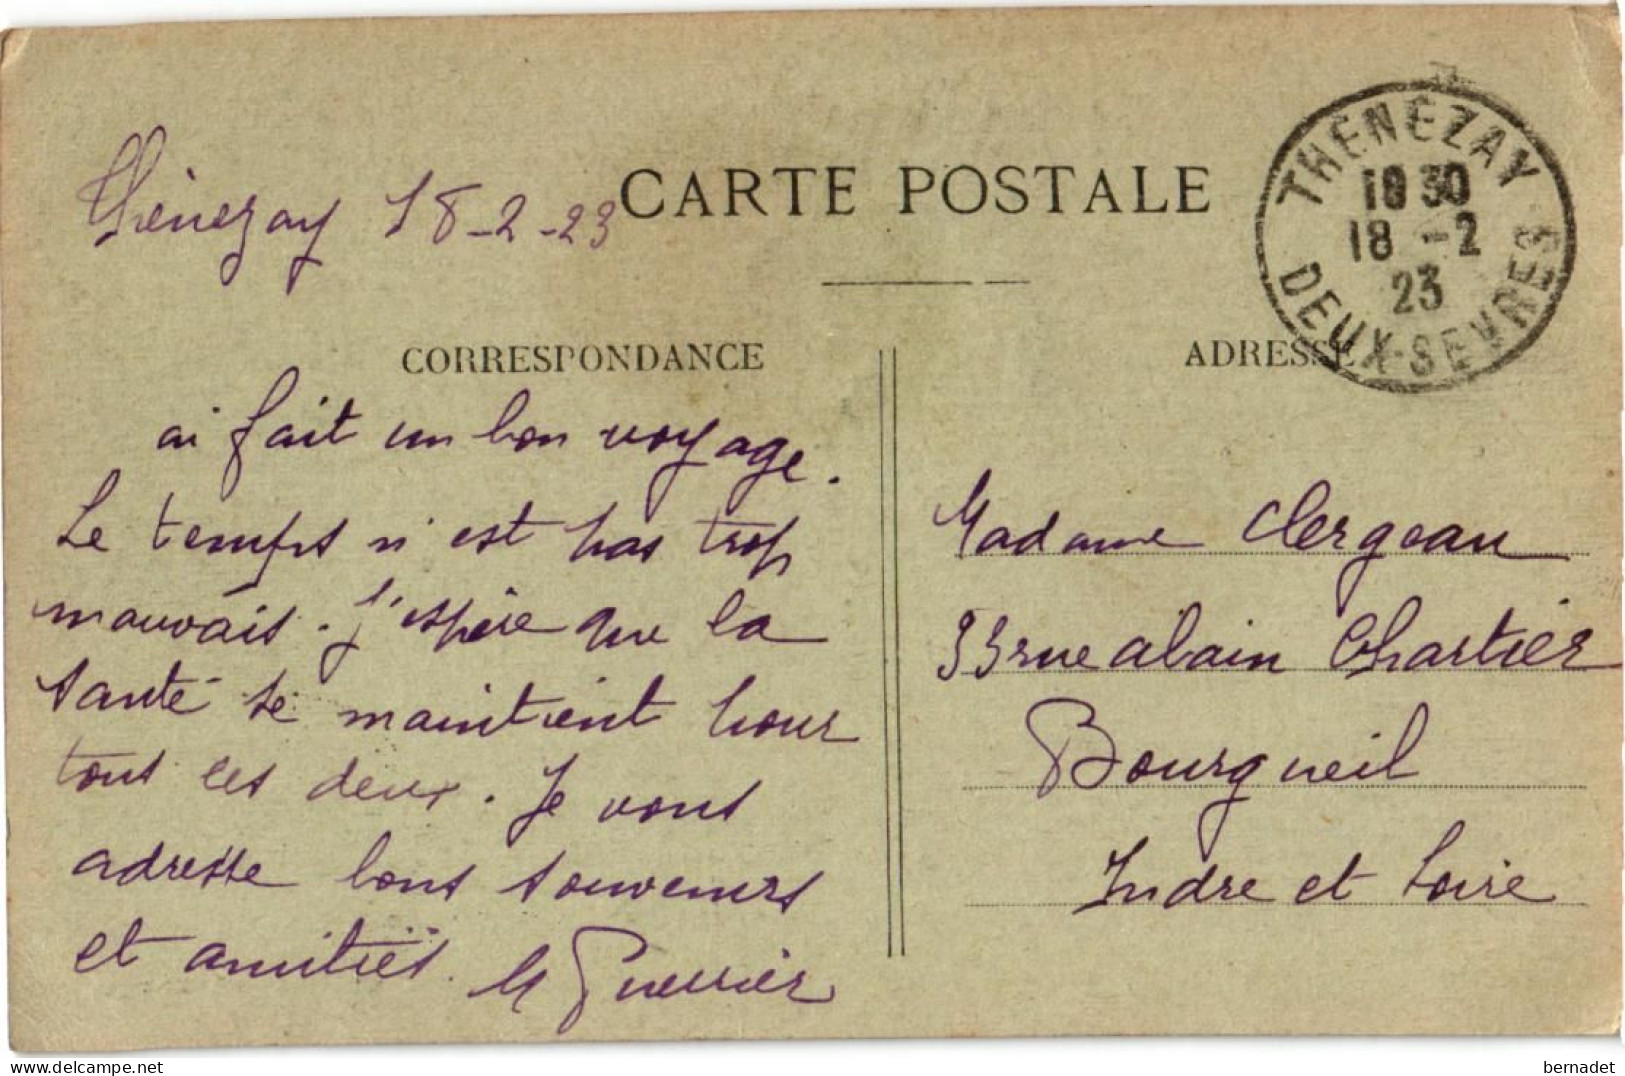 Thénezay 18-2-23
CARTE POSTALE
THENEZAY
18 30
18 -2
23
DEUX-SEVRES
CORRESPONDANCE
ADRESSE
ai fait un bon voyage.
Le temps n'est pas trop
mauvais. J'espère que la
santé se maintient pour
tous les deux. Je vous
adresse bons souvenirs
et amitiés.
Guerrier
Madame Clergeau
33 rue alain Chartier
Bourgueil
Indre et Loire
bernadet
delcampe.net